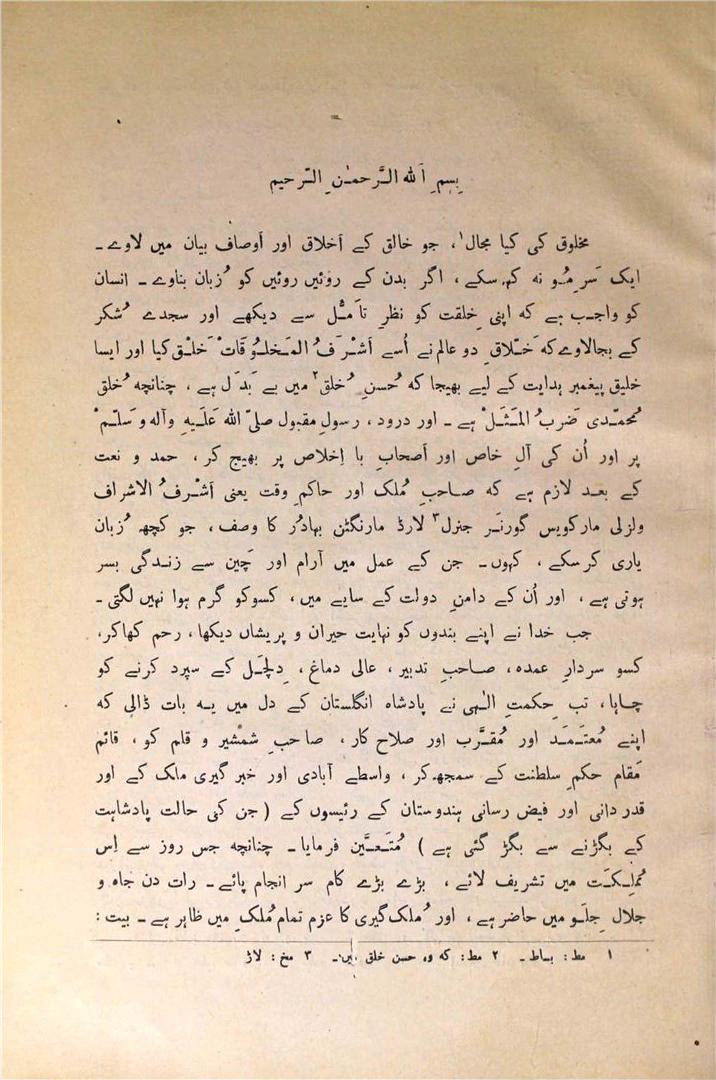 بِسْمِ اللہ الرَّحمٰنِ الرّحیم
مخلوق کی کیا مجال۱، جو خالق کے اَخلاق اور اَوصاف بیان میں لاوے ۔
ایک سَرِ مُو نہ کہہ سکے ، اگر بدن کے روئیں روئیں کو زُبان بناوے ۔ انسان
کو واجب ہے کہ اپنی خِلقت کو نظرِ تاَمُّل سے دیکھے اور سجدے شُکر
کے بجا لاوے کہ خَلّاقِ دو عالم نے اُسے اَشْرَفُ المَخلُوقَاتْ خَلْق کیا اور ایسا
خلیق پیغمبر ہدایت کے لیے بھیجا کہ حُسنِ خُلق۲ میں بے بَدَل ہے ، چنانچہ خُلق
مُحمّدی ضَربُ المَثَلْ ہے ۔ اور درود ، رسولِ مقبول صلیّ اللہ عَلَیہِ وآلہ و سَلّمْ
پر اور اُن کی آلِ خاص اور اَصحابِ با اِخلاص پر بھیج کر ، حمد و نعت
کے بعد لازم ہے کہ صاحبِ مُلک اور حاکمِ وقت یعنی اَشْرفُ الاشراف
ولزلی مارکویس گورنَر جنرل۳ لارڈ مارنگٹن بہادُر کا وصف ، جو کچھ زُبان
یاری کر سکے ، کہوں ۔ جن کے عمل میں آرام اور چَین سے زندگی بسر
ہوتی ہے ، اور اُن کے دامنِ دولت کے سایے میں ، کسو کو گرم ہوا نہیں لگتی ۔
جب خدا نے اپنے بندوں کو نہایت حیران و پریشاں دیکھا ، رحم کھا کر ،
کسو سردارِ عمدہ ، صاحبِ تدبیر ، عالی دماغ ، دِلچَل کے سپرد کرنے کو
چاہا ، تب حِکمتِ الٰہی نے پادشاہ انگلستان کے دل میں یہ بات ڈالی کہ
اپنے مُعتَمَد اور مُقرَّب اور صلاح کار ، صاحبِ شمشیر و قلم کو ، قائم
مَقام حکمِ سلطنت کے سمجھ کر ، واسطے آبادی اور خبر گیری ملک کے اور
قدردانی اور فیض رسانی ہندوستان کے رئیسوں کے ( جن کی حالت پادشاہت
کے بگڑنے سے بگڑ گئی ہے ) مُتَعَیَّن فرمایا ۔ چنانچہ جس روز سے اِس
مُملِکَت میں تشریف لائے ، بڑے بڑے کام سر انجام پائے ۔ رات دن جاہ و
جلال جِلَو میں حاضر ہے ، اور مُلک گیری کا عزم تمام مُلک میں ظاہر ہے ۔ بیت :
۱ مط : بساط ۔ ۲ مط : کہ وہ حسن خلق میں ۔ ۳ مخ : لاڑ